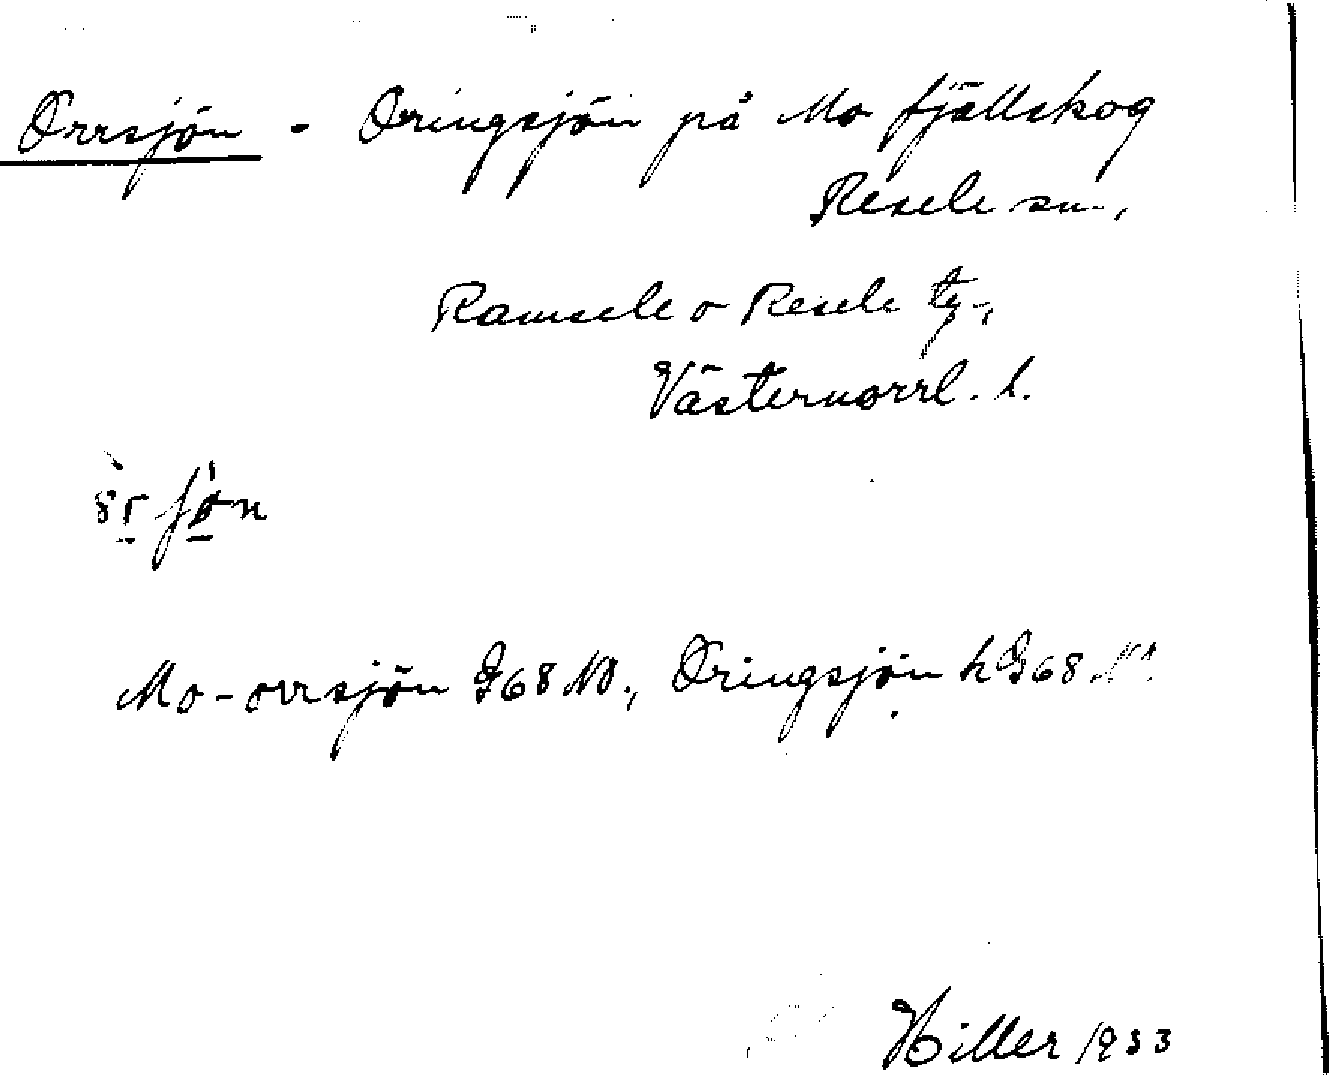 Orrsjön - Oringsjön på Mo fjällskog
Resele sn.,
Ramsele o Resele tg.,
Västernorrl. l.
Mo-orrsjön G68 NO., Oringsjön h G68 NO.
Hiller 1933